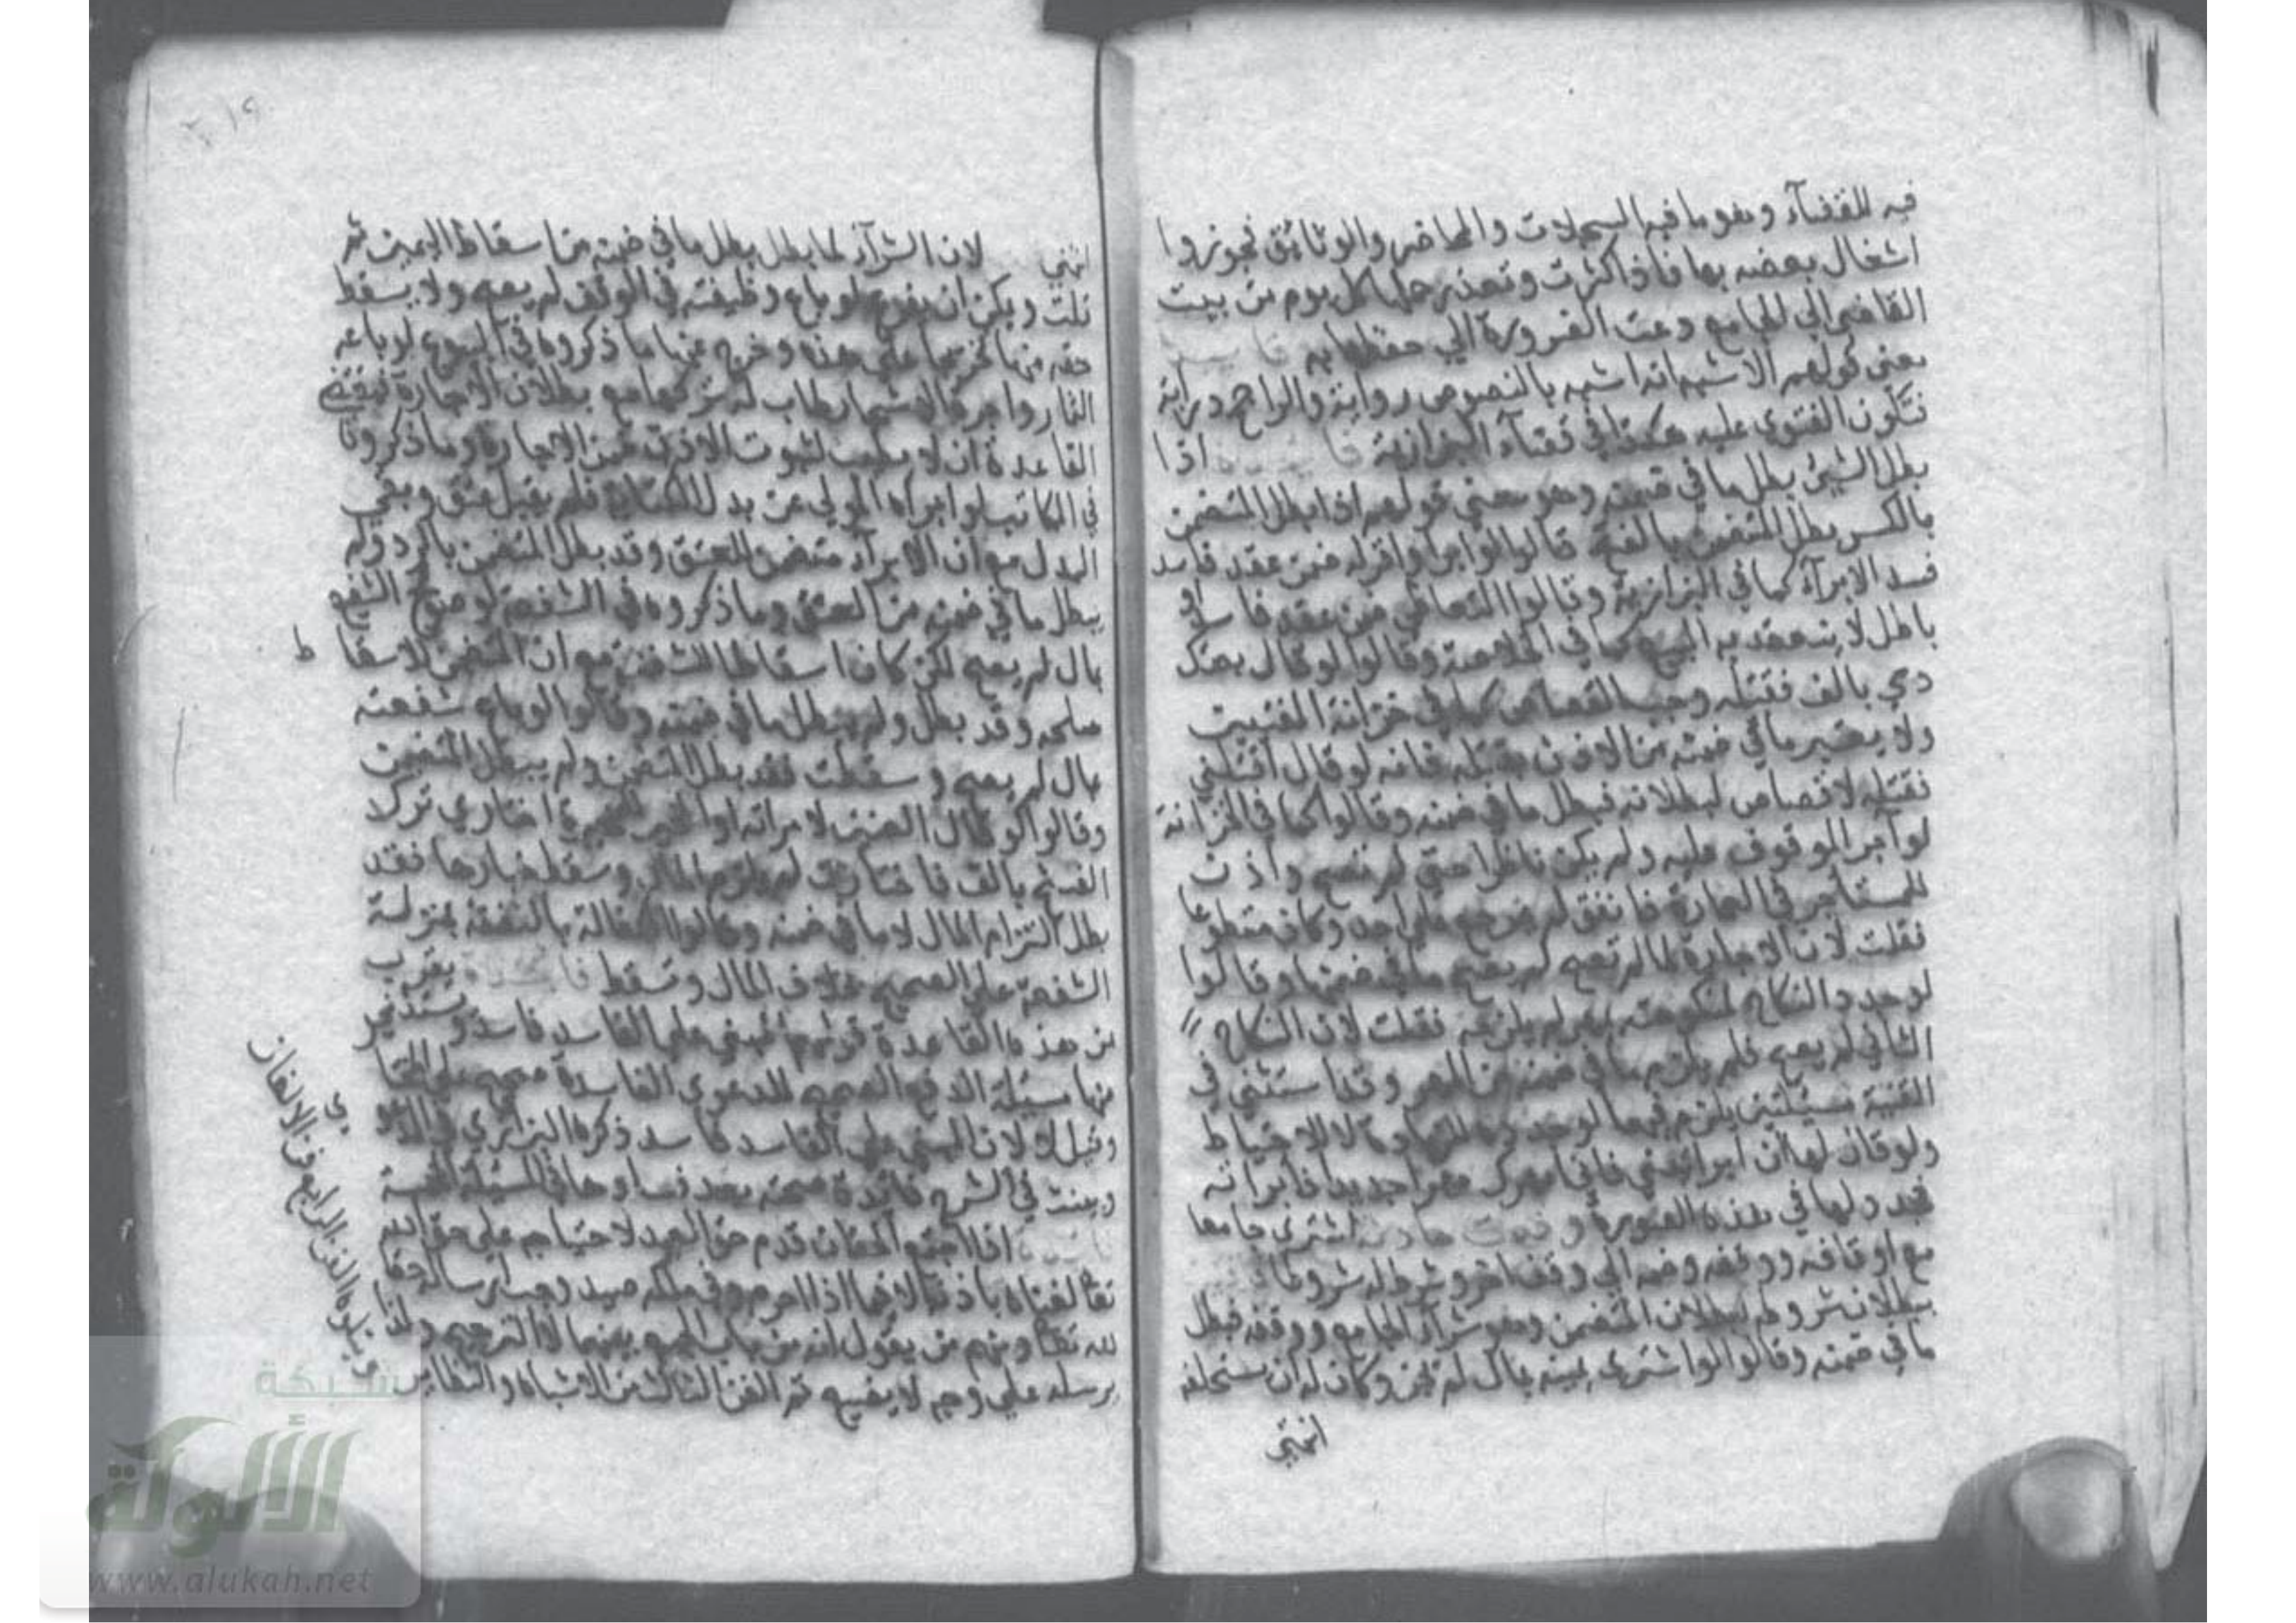 فيه للقضاء وهو ما فيه السجلات والمحاضر والوثائق فجوزوا
اشغال بعضه بها فاذا كثرت وتعذر حملها كل يوم من بيت
القاضي الي الجامع دعت الضرورة الي حفظها به
معني قولهم الاشبه انه اشبه بالنصوص رواية والراجح دراية
فتكون الفتوي عليه هكذا في قضاء البزازية اذا
بطل الشيئ بطل ما في ضمنه وهو معني قولهم اذا بطل المتضمن
بالكسر بطل المتضمن بالفتح قالوا لو ابراه او اقر له ضمن عقد فاسد
فسد الابرآء كما في البزازية وقالوا التعاطي ضمن عقد فاسد او
باطل لا ينعقد به البيع كما في الخلاصة وقالوا لو قال بعتك
دمي بالف فقتله وجب القصاص كما في خزانة المفتيين
ولا يعتبر ما في ضمنه من الاذن بقتله فانه لو قال اقتلني
فقتله لا قصاص لبطلانه فبطل ما في ضمنه وقالوا كما في الخزانة
لو آجر الموقوف عليه ولم يكن ناظرا حتي لم تصح واذن
للمستأجر في العمارة فانفق لم يرجع علي احد وكان متطوعا
فقلت لان الاجارة لما لم تصح لم يصح ما في ضمنها وقالوا
لو جدد النكاح لمنكوحته بمهر لم يلزمه فقلت لان النكاح
الثاني لم يصح فلم يلزم ما في ضمنه من المهر وقد استثني في
القنية مسئلتين يلزم فيهما لو جدد للاحتياط
ولو قال لها ان ابراتيني فاني امهرك مهرا جديدا فابراته
فجدد لها في هذه الصورة وقعت حادثة اشتري جامعا
مع اوقافه ووقفه وضمه الي وقف اخر وشرط له شروطا
ببطلان شروطه لبطلان المتضمن وهو شراء الجامع ووقفه فبطل
ما في ضمنه وقالوا لو اشتري يمينه بمال لم يجز وكان له ان يستحلفه
انتهي
انتهي لان الشرآء لما بطل بطل ما في ضمنه من اسقاط اليمين ثم
قلت ويمكن ان يفرع لو باع وظيفته في الوقف لم يصح ولا يسقط
حقه منها تخريجا علي هذه وخرج عنها ما ذكروه في البيوع لو باعه
الثمار واجره الاشجار طاب له تركها مع بطلان الاجارة فمقتضي
القاعدة ان لا يطيب لثبوت الاذن ضمن الاجارة وما ذكروه
في المكاتب لو ابراه المولي عن بدل الكتابة فلم يقبل عتق وبقي
البدل مع ان الابرآء متضمن للعتق وقد بطل المتضمن بالرد ولم
يبطل ما في ضمنه من العتق وما ذكروه في الشفعة لو صولح الشفيع
بمال لم يصح لكن كان اسقاطا للشفعة مع ان المتضمن للاسقاط
صلحه وقد بطل ولم يبطل ما في ضمنه وقالوا لو باع شفعته
بمال لم يصح وسقطت فقد بطل المتضمن ولم يبطل المتضمن
وقالوا لو قال العنين لامراته او المخير للمخيرة اختاري ترك
الفسخ بالف فاختارت لم يلزم المال وسقط خيارها فقد
بطل التزام المال لا ما في ضمنه وقالوا الكفالة بالنفس بمنزلة
الشفعة علي الصحيح بخلاف المال وتسقط يقرب
من هذه القاعدة قولهم المبني علي الفاسد فاسد ويستثني
منها مسئلة الدفع الصحيح للدعوي الفاسدة صحيح علي المختار
وقيل لا لان المبني علي الفاسد فاسد ذكره البزازي في الدعوي
وبينت في الشرح فائدة صحته بعد فسادها في المسئلة المخمسة
اذا اجتمع الحقان قدم حق العبد لاحتياجه علي حق الله
تعالي لغناه باذنه الا فيما اذا احرم وفي ملكه صيد وجب ارساله حقا
لله تعالي ومنهم من يقول انه من باب الجمع بينهما لا الترجيح ولذا
يرسله علي وجه لا يضيع تم الفن الثالث من الاشباه والنظائر
ويتلوه الفن الرابع فن الالغاز
شبكة
الألوكة
www.alukah.net